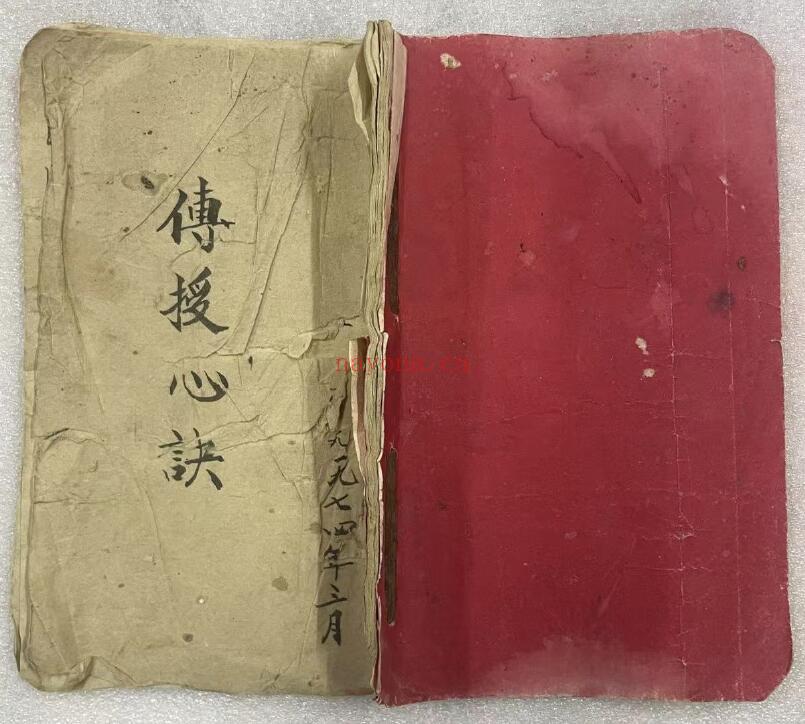 傳授心訣
一九七四年三月
nayona.cn